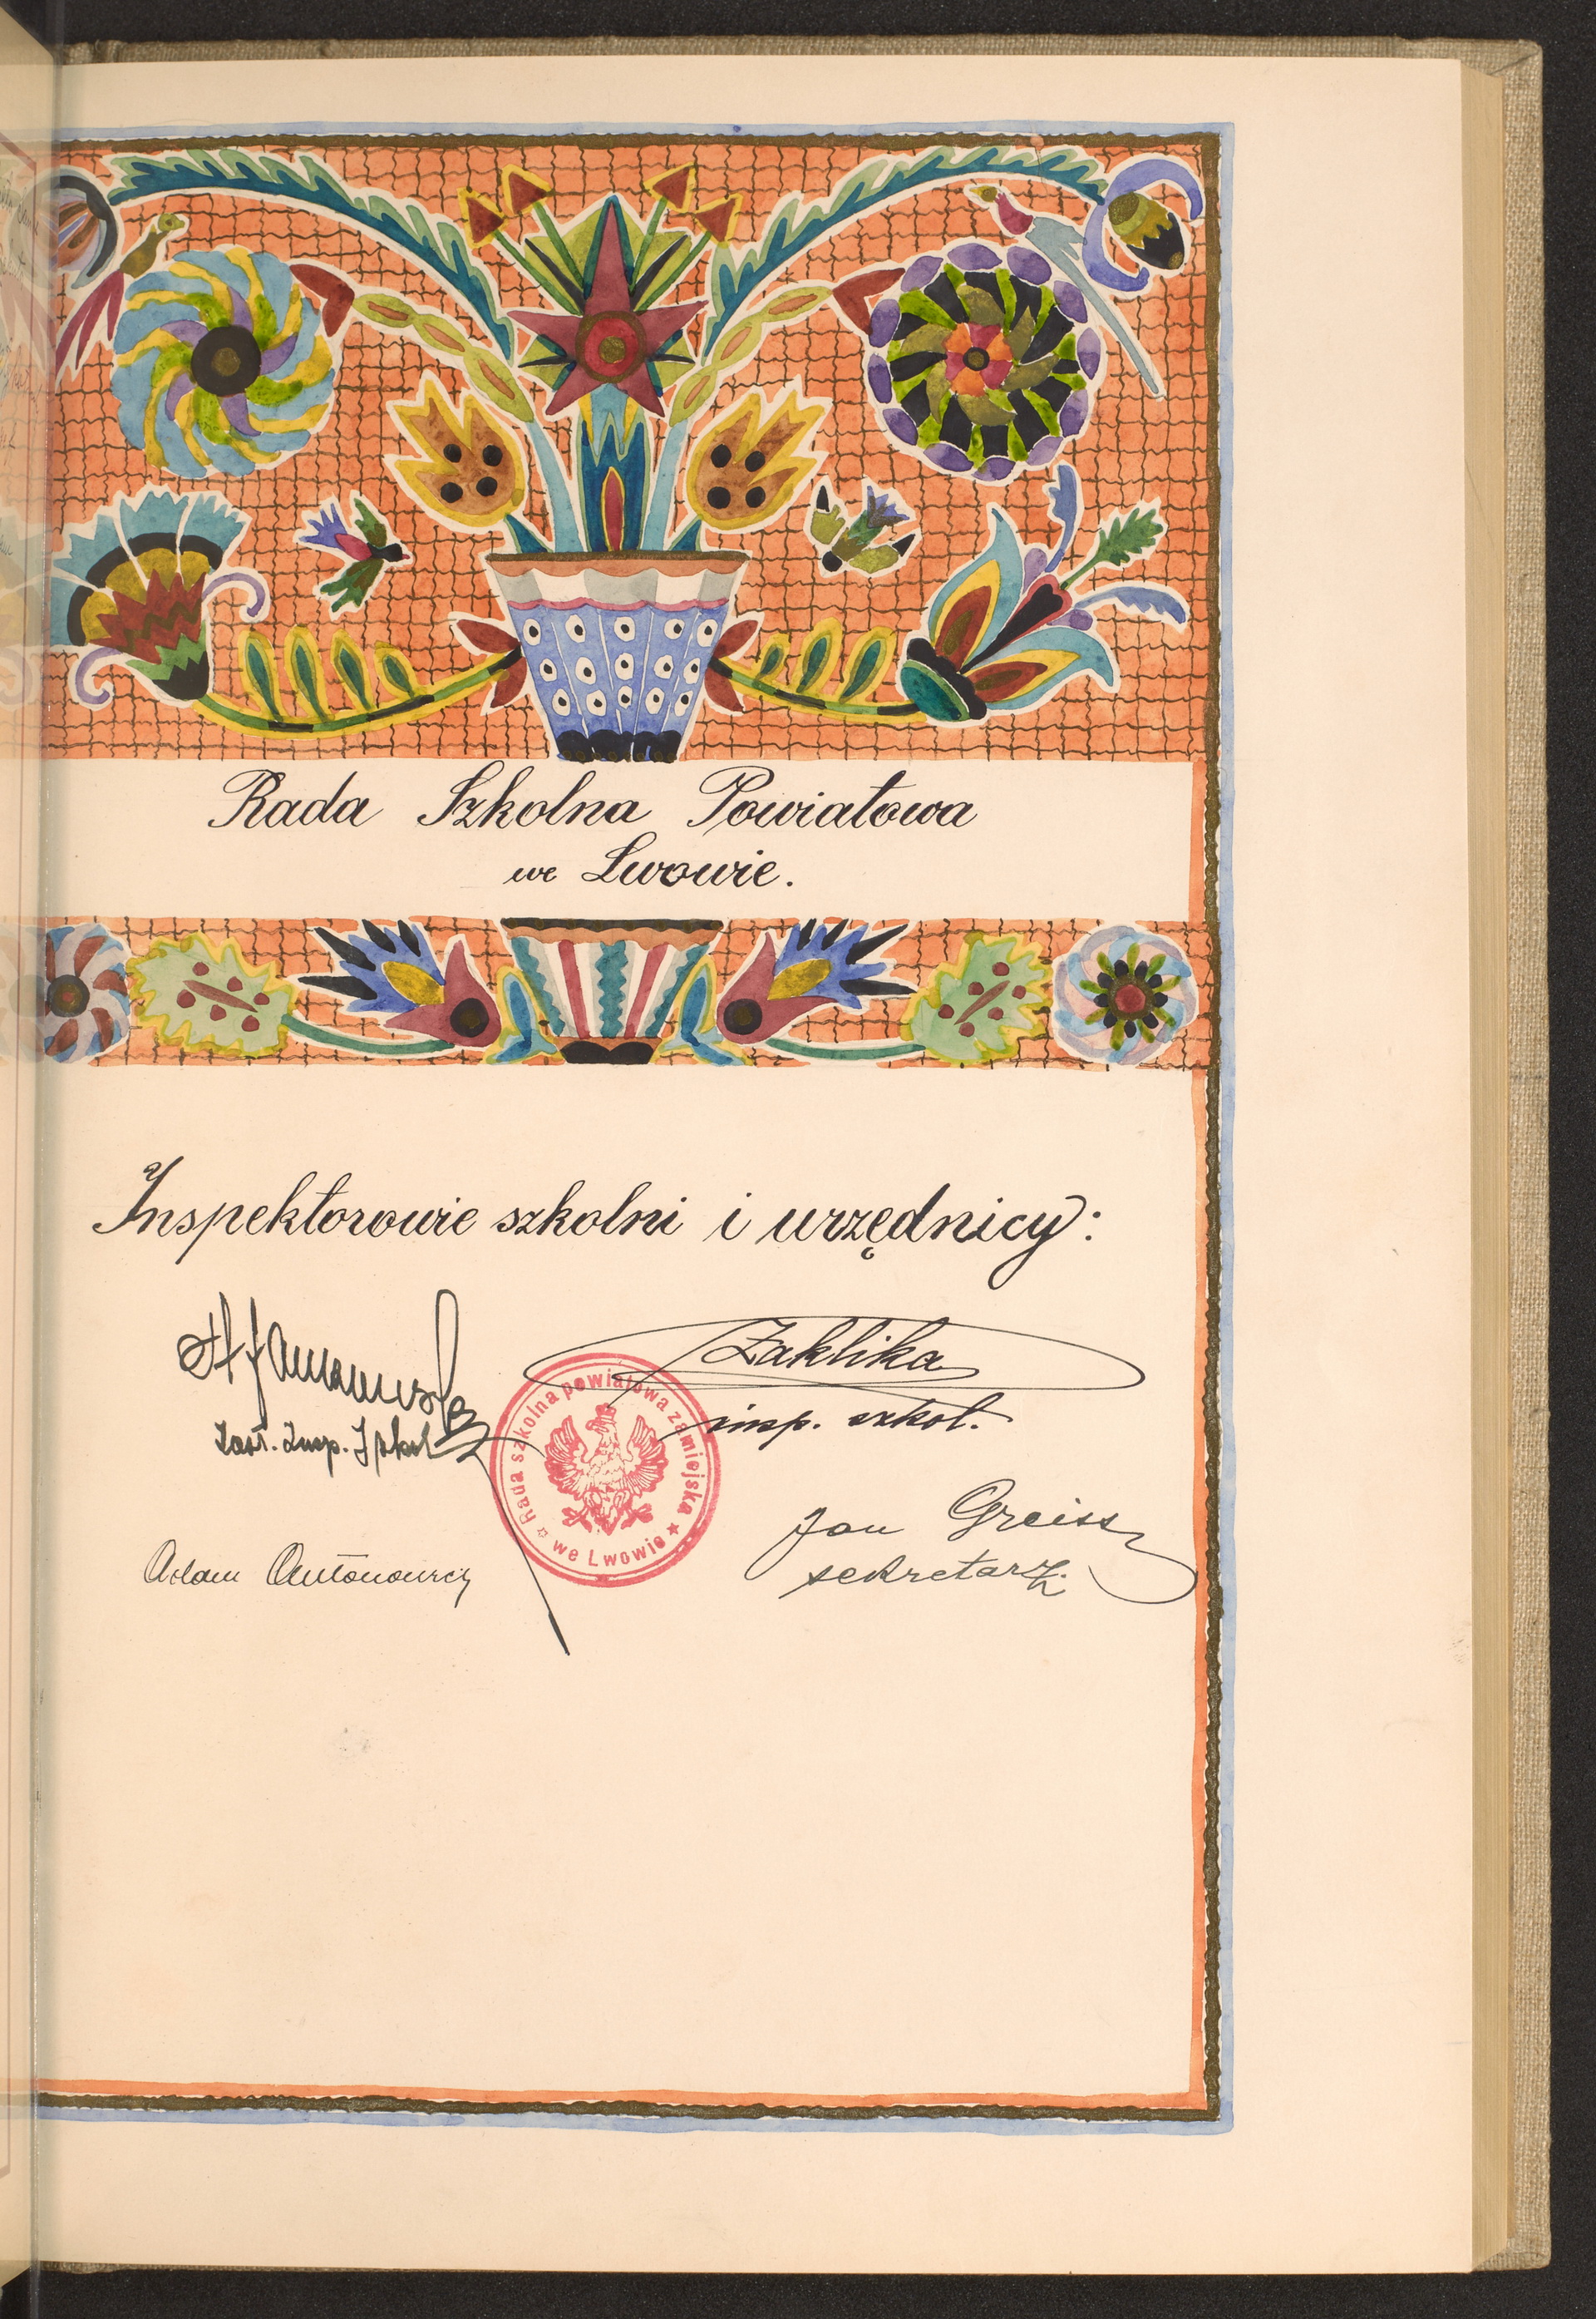 Rada Szkolna Powiatowa
we Lwowie.
Inspektorowie szkolni i urzędnicy:
Zast. Insp. Szkol
Zaklika
insp. szkol.
Rada szkolna powiatowa zamiejska
we Lwowie
Jan Greiss
sekretarz.
Adam Antonowicz